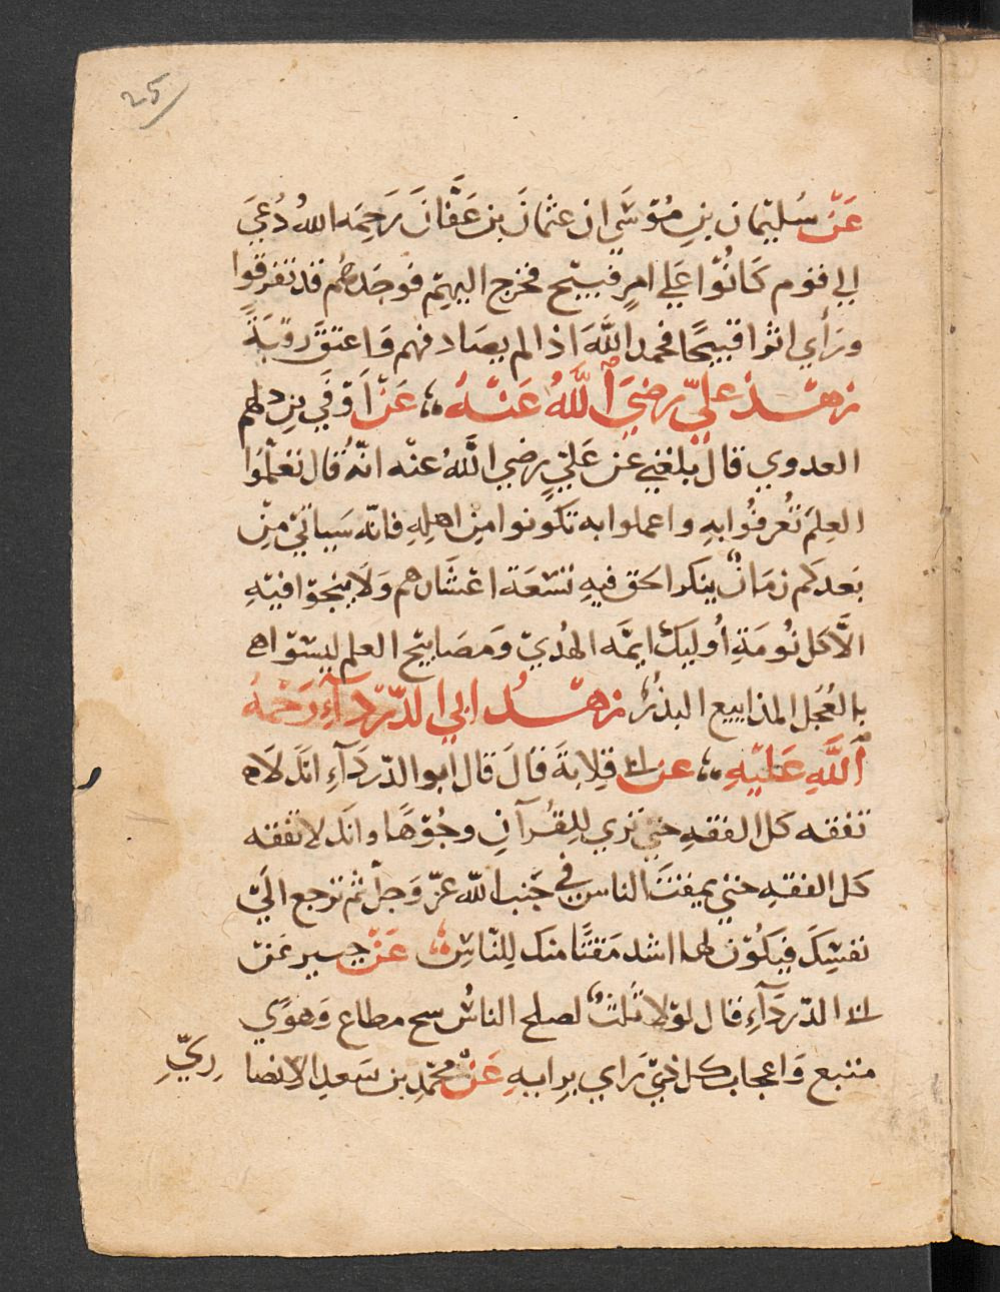 25
عَنْ سُليْمان بنِ مُوْسَي ان عثمانَ بن عَفَّانَ رَحِمَه اللهُ دُعِيَ
الي قوم كَانُوْا عَلي امرٍ قبيْح فخرج اليهِمْ فوجَدهُم قد تفرقوا
ورَأي اثرا قبيحًا فحمد اللَّهَ اذا لم يصَادفهم وَاعتقَ رقبَةً
زهْد عليّ رضيَ اللَّهُ عَنْهُ عَنْ اَوْفَي بن دلهم
العدوي قال بلغني عن عَليّ رضي اللَّهُ عنْه انّهُ قال تعَلّمُوا
العِلمَ تُعرفُوا بهِ واعملوا به تكونوا مِن اهلِهِ فانّه سَياتيْ مِنْ
بَعدكم زمَانٌ ينكر الحق فيهِ تسْعَة اعْشَارهم وَلَا ينجوْا فيْهِ
الَّا كل نُومَةٍ اُوليك ايمَّه الهُديْ وَمصَابيْح العلم ليسَوْا ه
بالعُجُل المذاييع البذُرُ زهْد ابي الدّرْدَآءِ رَحْمَةُ
اللَّهِ عَليْهِ عن ابي قلابة قالَ قال ابوا الدّردَآءِ انَكَ لَا ه
تفقه كل الفقهِ حتي تري لِلقُرآنِ وجُوْهًا وانكَ لا تفقه
كل الفقهِ حتي يمقتَ الناس في جَنب اللّه عزّ وَجلّ ثم ترجع اليْ
نفسِكَ فيكُوْن لها اشد مَقتًا منك لِلنّاسِ عَنْ جبير عَنْ
ابي الدّردَآءِ قال لوْلا ثلثٌ لصلح الناسُ شح مطاع وَهوًي
متبع وَاعجاب كل ذيْ رَاي بِرايهِ عَنْ محمّدِ بن سَعدِ الانصا
رِيّ